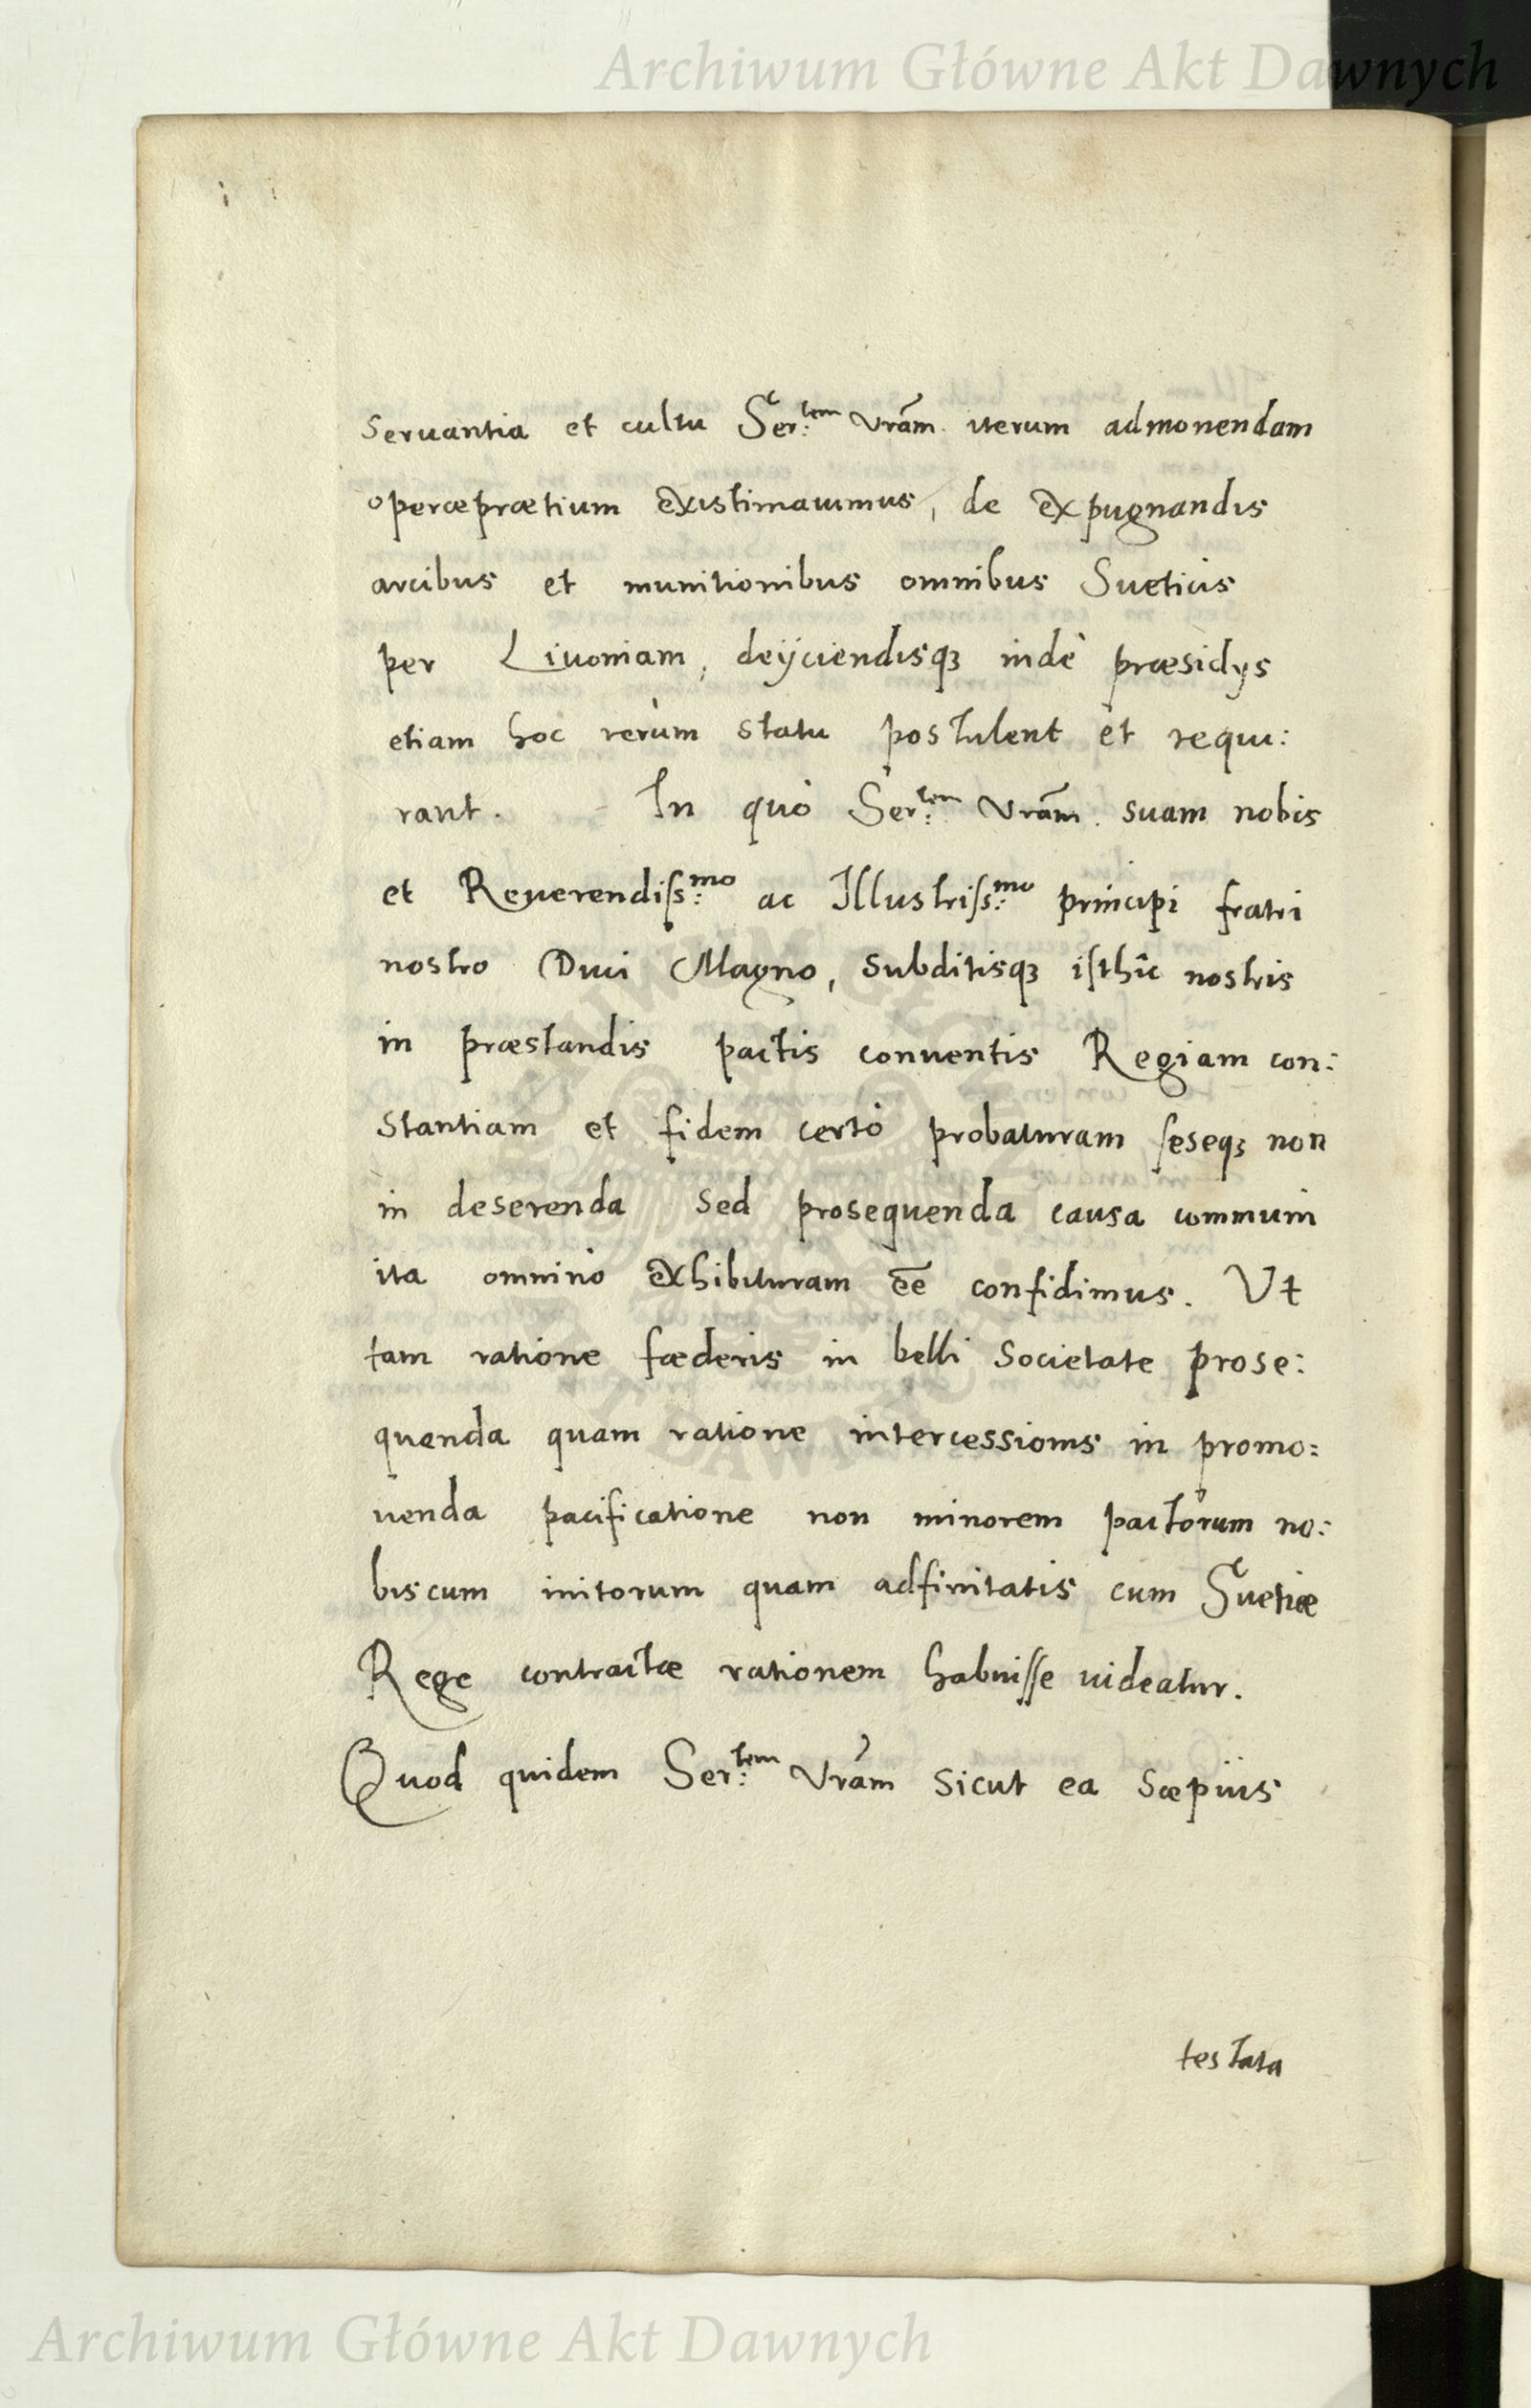 Archiwum Główne Akt Dawnych
seruantia et cultu Ser:tem Vram. iterum admonendam
operæprætium existimauimus, de expugnandis
arcibus et munitionibus omnibus Sueticis
per Liuoniam, deijciendisq3 indè præsidys
etiam hoc rerum statu postulent et requi:
rant. In quò Ser:tem Vram. suam nobis
et Reuerendiſs:mo ac Illustriſs:mo principi fratri
nostro Duci Magno, subditisq3 iſthîc nostris
in præstandis pactis conuentis Regiam con:
stantiam et fidem certò probaturam ſeseq3 non
in deserenda sed prosequenda causa communi
ita omninò exhibituram eē confidimus. Vt
tam ratione fœderis in belli societate prose:
quenda quam ratione intercessionis in promo:
uenda pacificatione non minorem pactorum no:
biscum initorum quam adfinitatis cum Suetiæ
Rege contractæ rationem habuiſſe uideatur.
Quod quidem Ser:tem Vram sicut ea sæpius
testata
Archiwum Główne Akt Dawnych